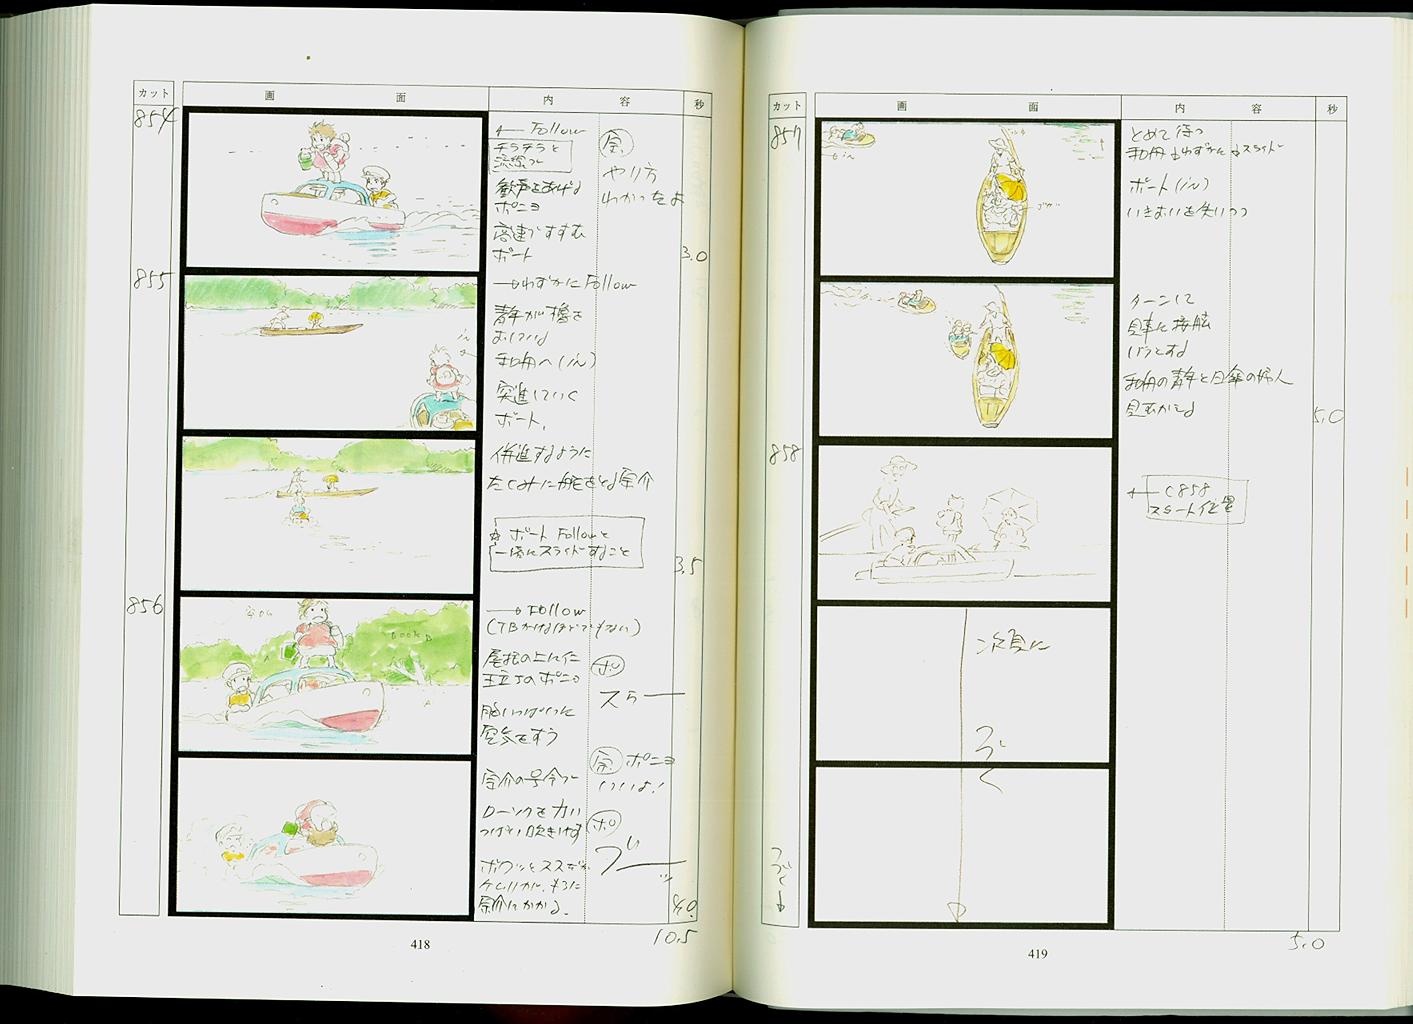 カット
画 面
内 容
秒
854
← Follow
チラチラと
波線で
歓声をあげる
ポニョ
高速ですすむ
ボート
宗
やり方
わかったよ
3.0
855
→わずかに Follow
青年が櫓を
おしている
和舟へ (in)
突進していく
ボート。
in
併進するように
たくみに舵をとる宗介
☆ ボート Followと
一緒にスライドすること
3.5
856
BOOK
BOOK B
A
→ Follow
(TBかけるほどでもない)
屋根の上に仁
王立ちのポニョ
胸いっぱいに
空気をすう
ポ
スゥー
宗介の号令で
ローソクを力い
っぱい吹きけす
宗 ポニョ
いいよ!
ポ
ブーッ
ボワッとススだか
ケムリが、もろに
宗介にかかる。
4.0
10.5
418
カット
画 面
内 容
秒
857
in
とめて待つ
和舟 ↓わずかに↓スライド
ボート (in)
いきおいを失いつつ
ターンして
見事に接舷
しようとする
和舟の青年と日傘の婦人
見むかえる
5.0
858
← C858
スタート位置
次頁に
つづく
つづく→
5.0
419